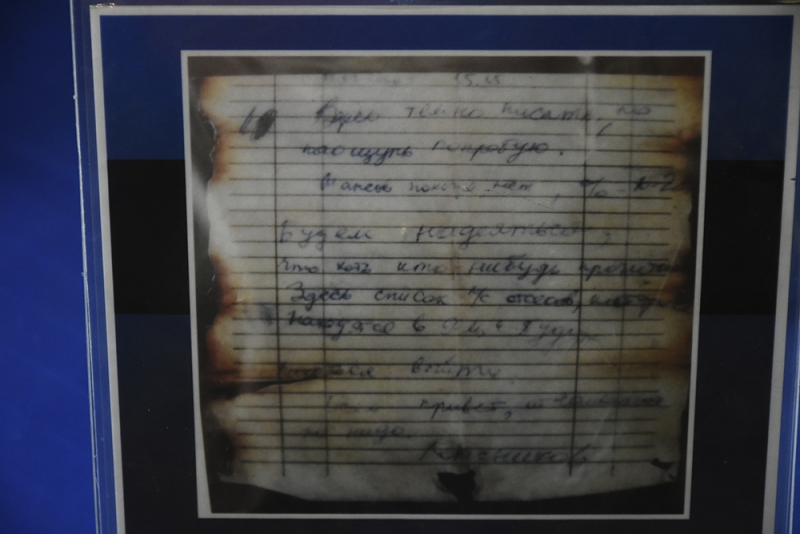 темно писать, но
на ощупь попробую.
Шансов похоже нет, % 10-20
Будем надеяться,
что хоть кто-нибудь прочитает
Здесь список л/с отсеков, которые
находятся в 9-м и будут
выйти.
привет, отчаиваться
не надо.
Колесников